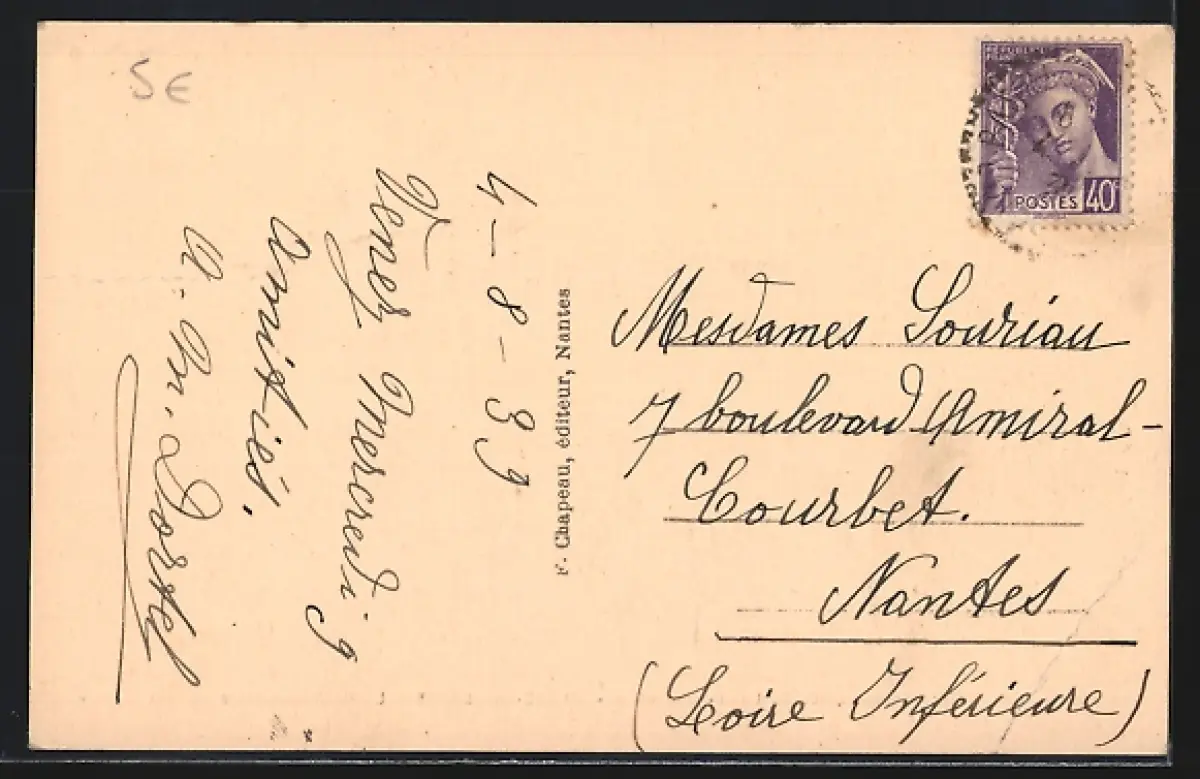 5 €
4-8-39
Venez Mercredi 9
Amitiés,
F. Chapeau, éditeur, Nantes
POSTES 40c
Mesdames Souriau
7 boulevard Amiral-
Courbet.
Nantes
(Loire Inférieure)